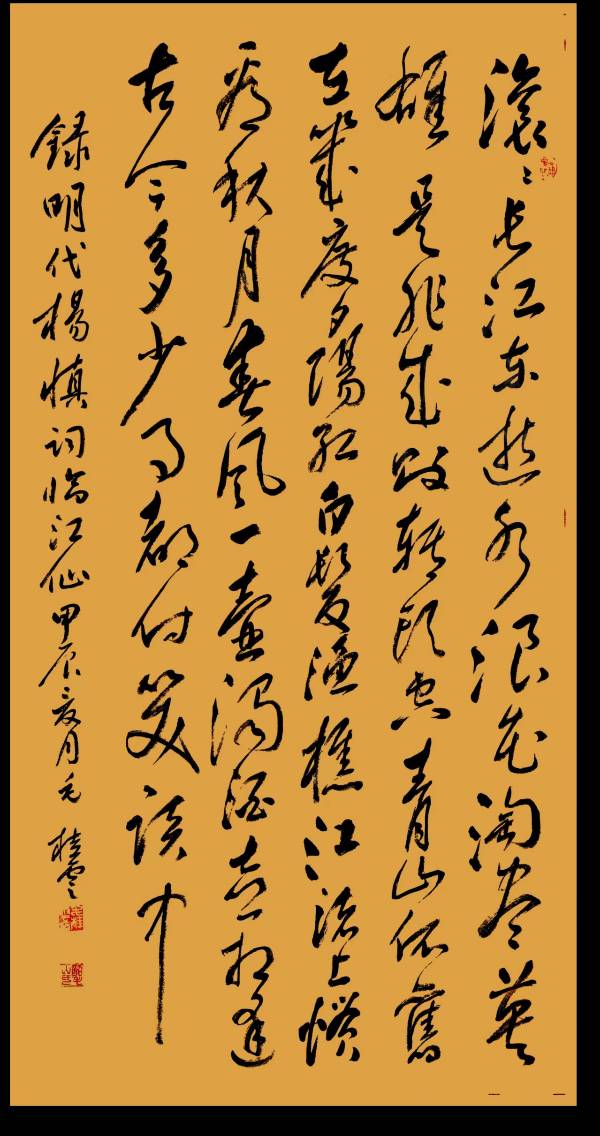 滚〻长江东逝水浪花淘尽英
雄是非成败转头空青山依舊
在幾度夕陽红白髮渔樵江渚上惯
看秋月春风一壶濁酒喜相逢
古今多少事都付笑谈中
録明代楊慎词临江仙甲辰夏月毛桂雲